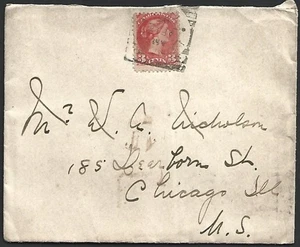 Mr. W. A. Nicholson
185 Dearborn St.
Chicago Ill
U.S.